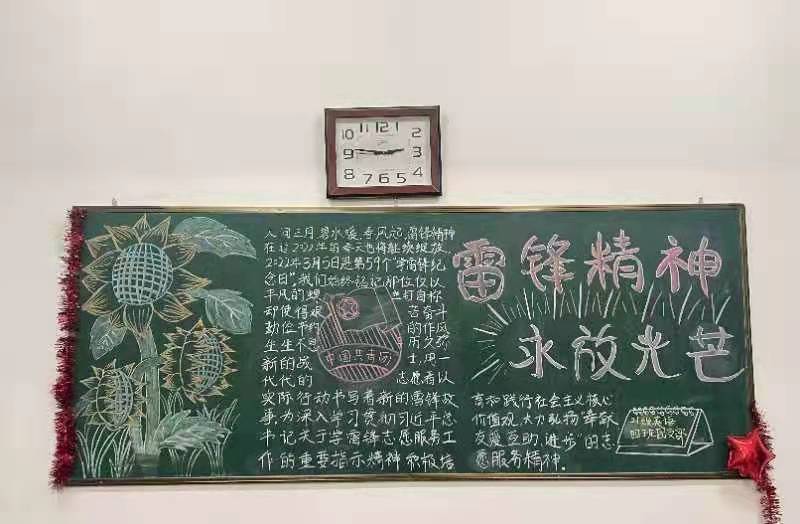 11 12
10 2
9 3
8 4
7 6 5
人间三月碧水暖,春风起,雷锋精神
在这2022年的春天也将继续绽放
2022年3月5日是第59个"学雷锋纪
念日"我们始终铭记那位仅以
平凡的 打自称
却使得艰 苦奋斗
勤俭节约 的作风
生生不息 历久弥
新的战 士,用一
代代的 志愿者以
实际行动书写着新的雷锋故
事,为深入学习贯彻习近平总
书记关于学雷锋志愿服务工
作的重要指示精神积极培
中国共青团
雷锋精神
永放光芒
育和践行社会主义核心
价值观,大力弘扬"奉献
友爱 互助 进步"的志
愿服务精神.